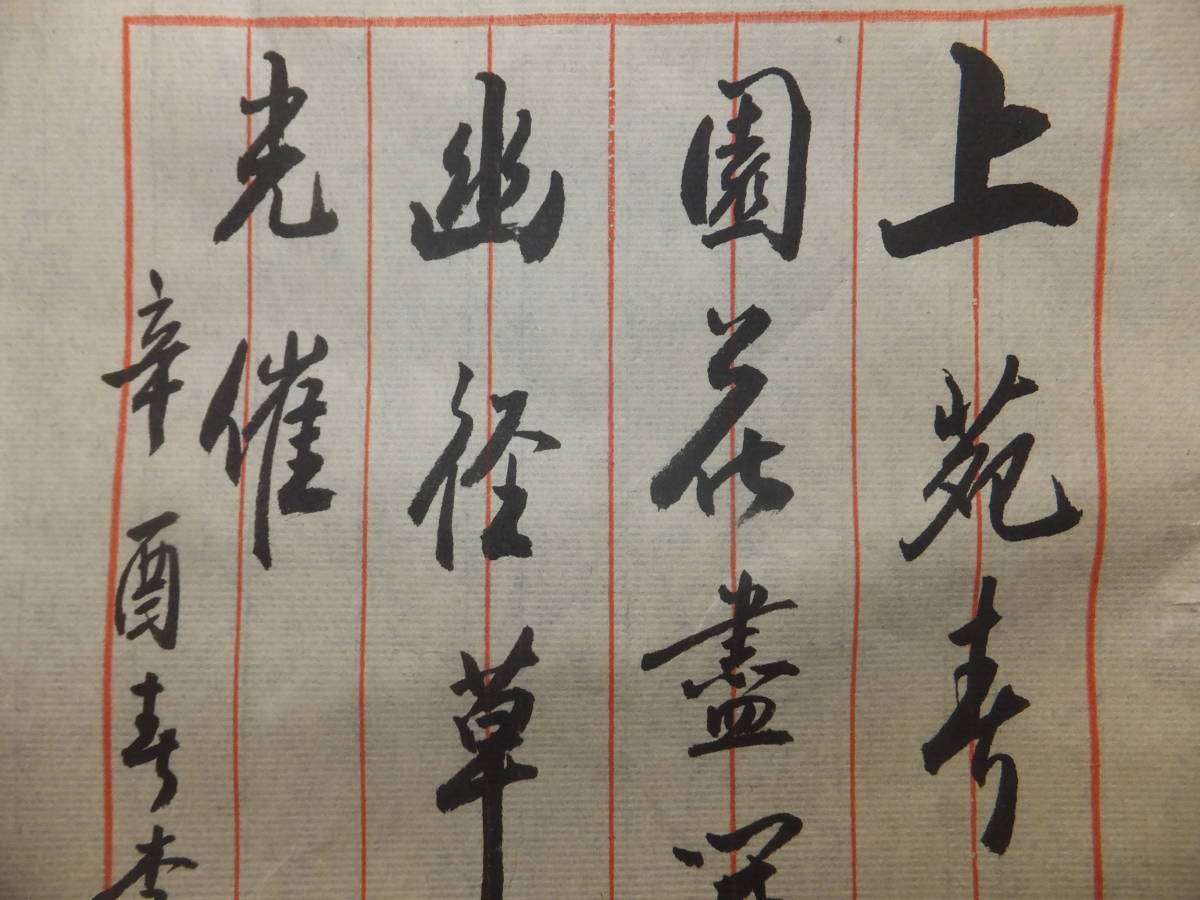 上苑春
園花盡開
幽徑草
光催
辛酉春李